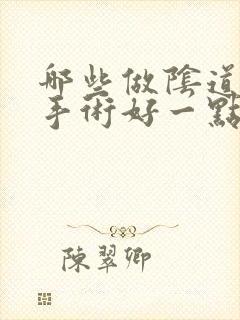 哪些做陰道
手術好一點
陳翠卿